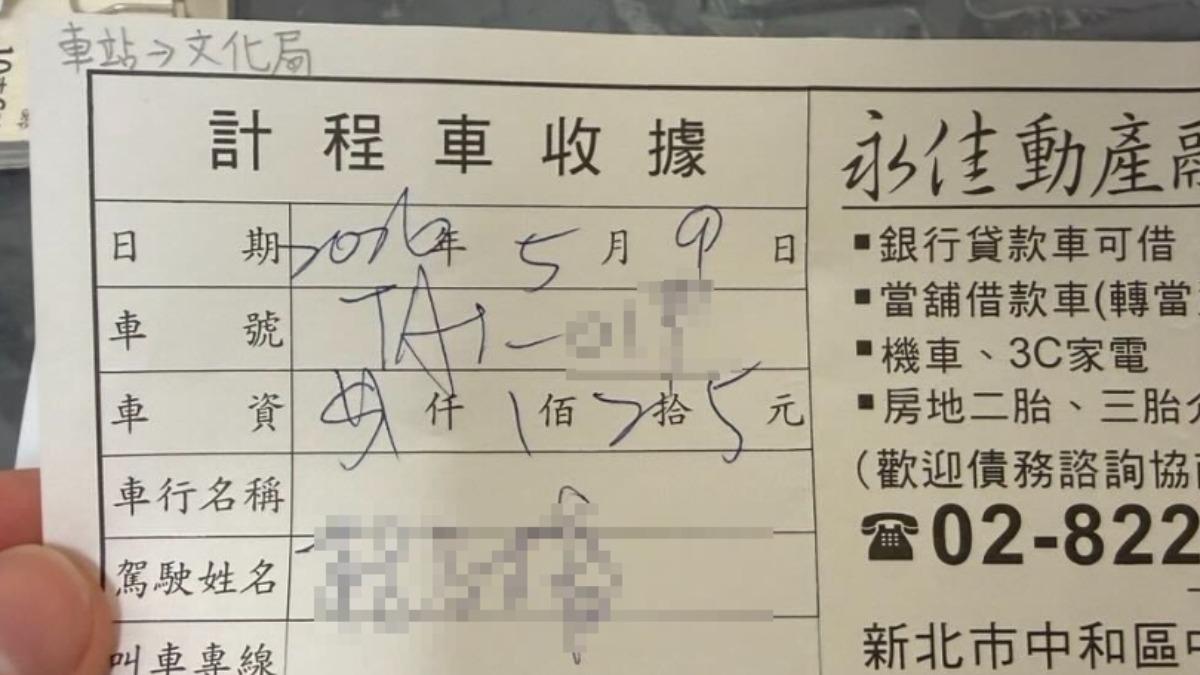 車站→文化局
計程車收據
日期 2026年 5月 9日
車號 TA
車資 仟 1佰 2拾 5元
車行名稱
駕駛姓名
叫車專線
永佳動產融
■銀行貸款車可借
■當舖借款車(轉當
■機車、3C家電
■房地二胎、三胎
(歡迎債務諮詢協商
☎02-822
新北市中和區中